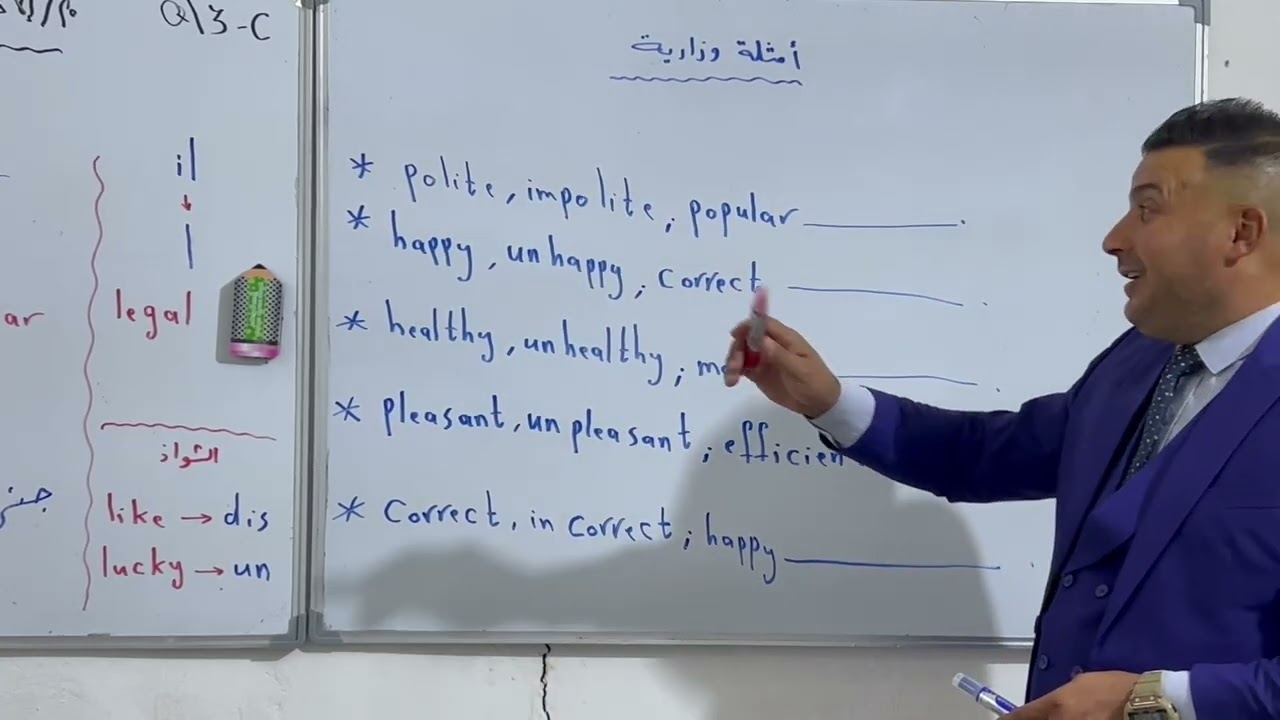 Q\3-C
il
l
legal
ar
الشواذ
like → dis
lucky → un
أمثلة وزارية
* polite, impolite; popular ________.
* happy, unhappy; correct ________.
* healthy, unhealthy; ________.
* pleasant, unpleasant; efficien
* Correct, incorrect; happy ________.